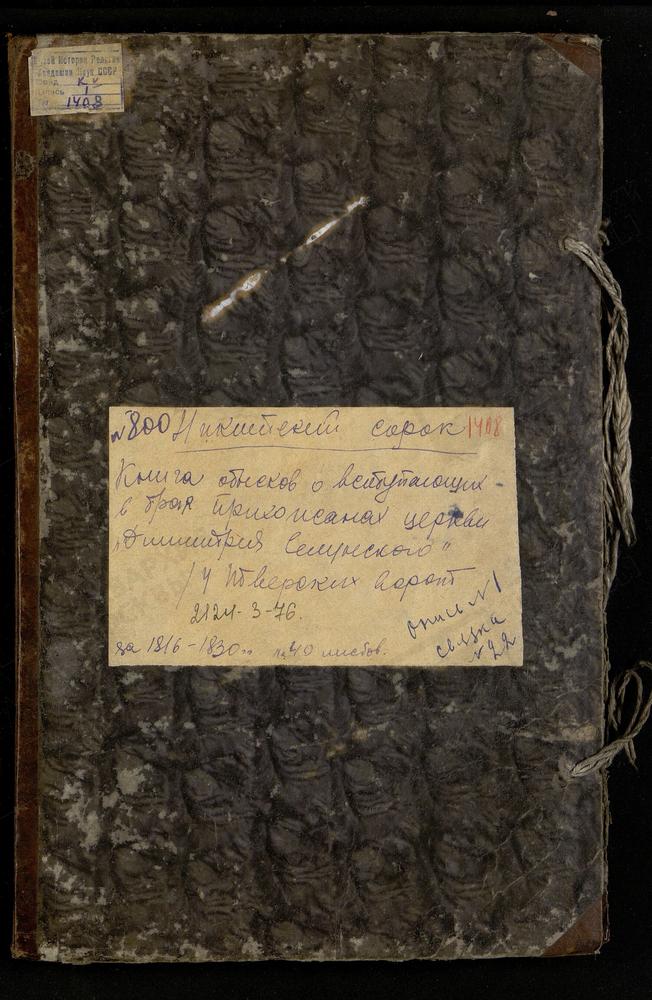 Музей Истории Религии
Академии Наук СССР
Фонд К V
Опись 1
№ 1408
№800 Никитский сорок 1408
Книга обысков о вступающих
в брак прихожанах церкви
„Димитрия Селунского"
/у Тверских ворот
2124-3-76.
за 1816-1830гг на 40 листов.
опись №1
связка
№22